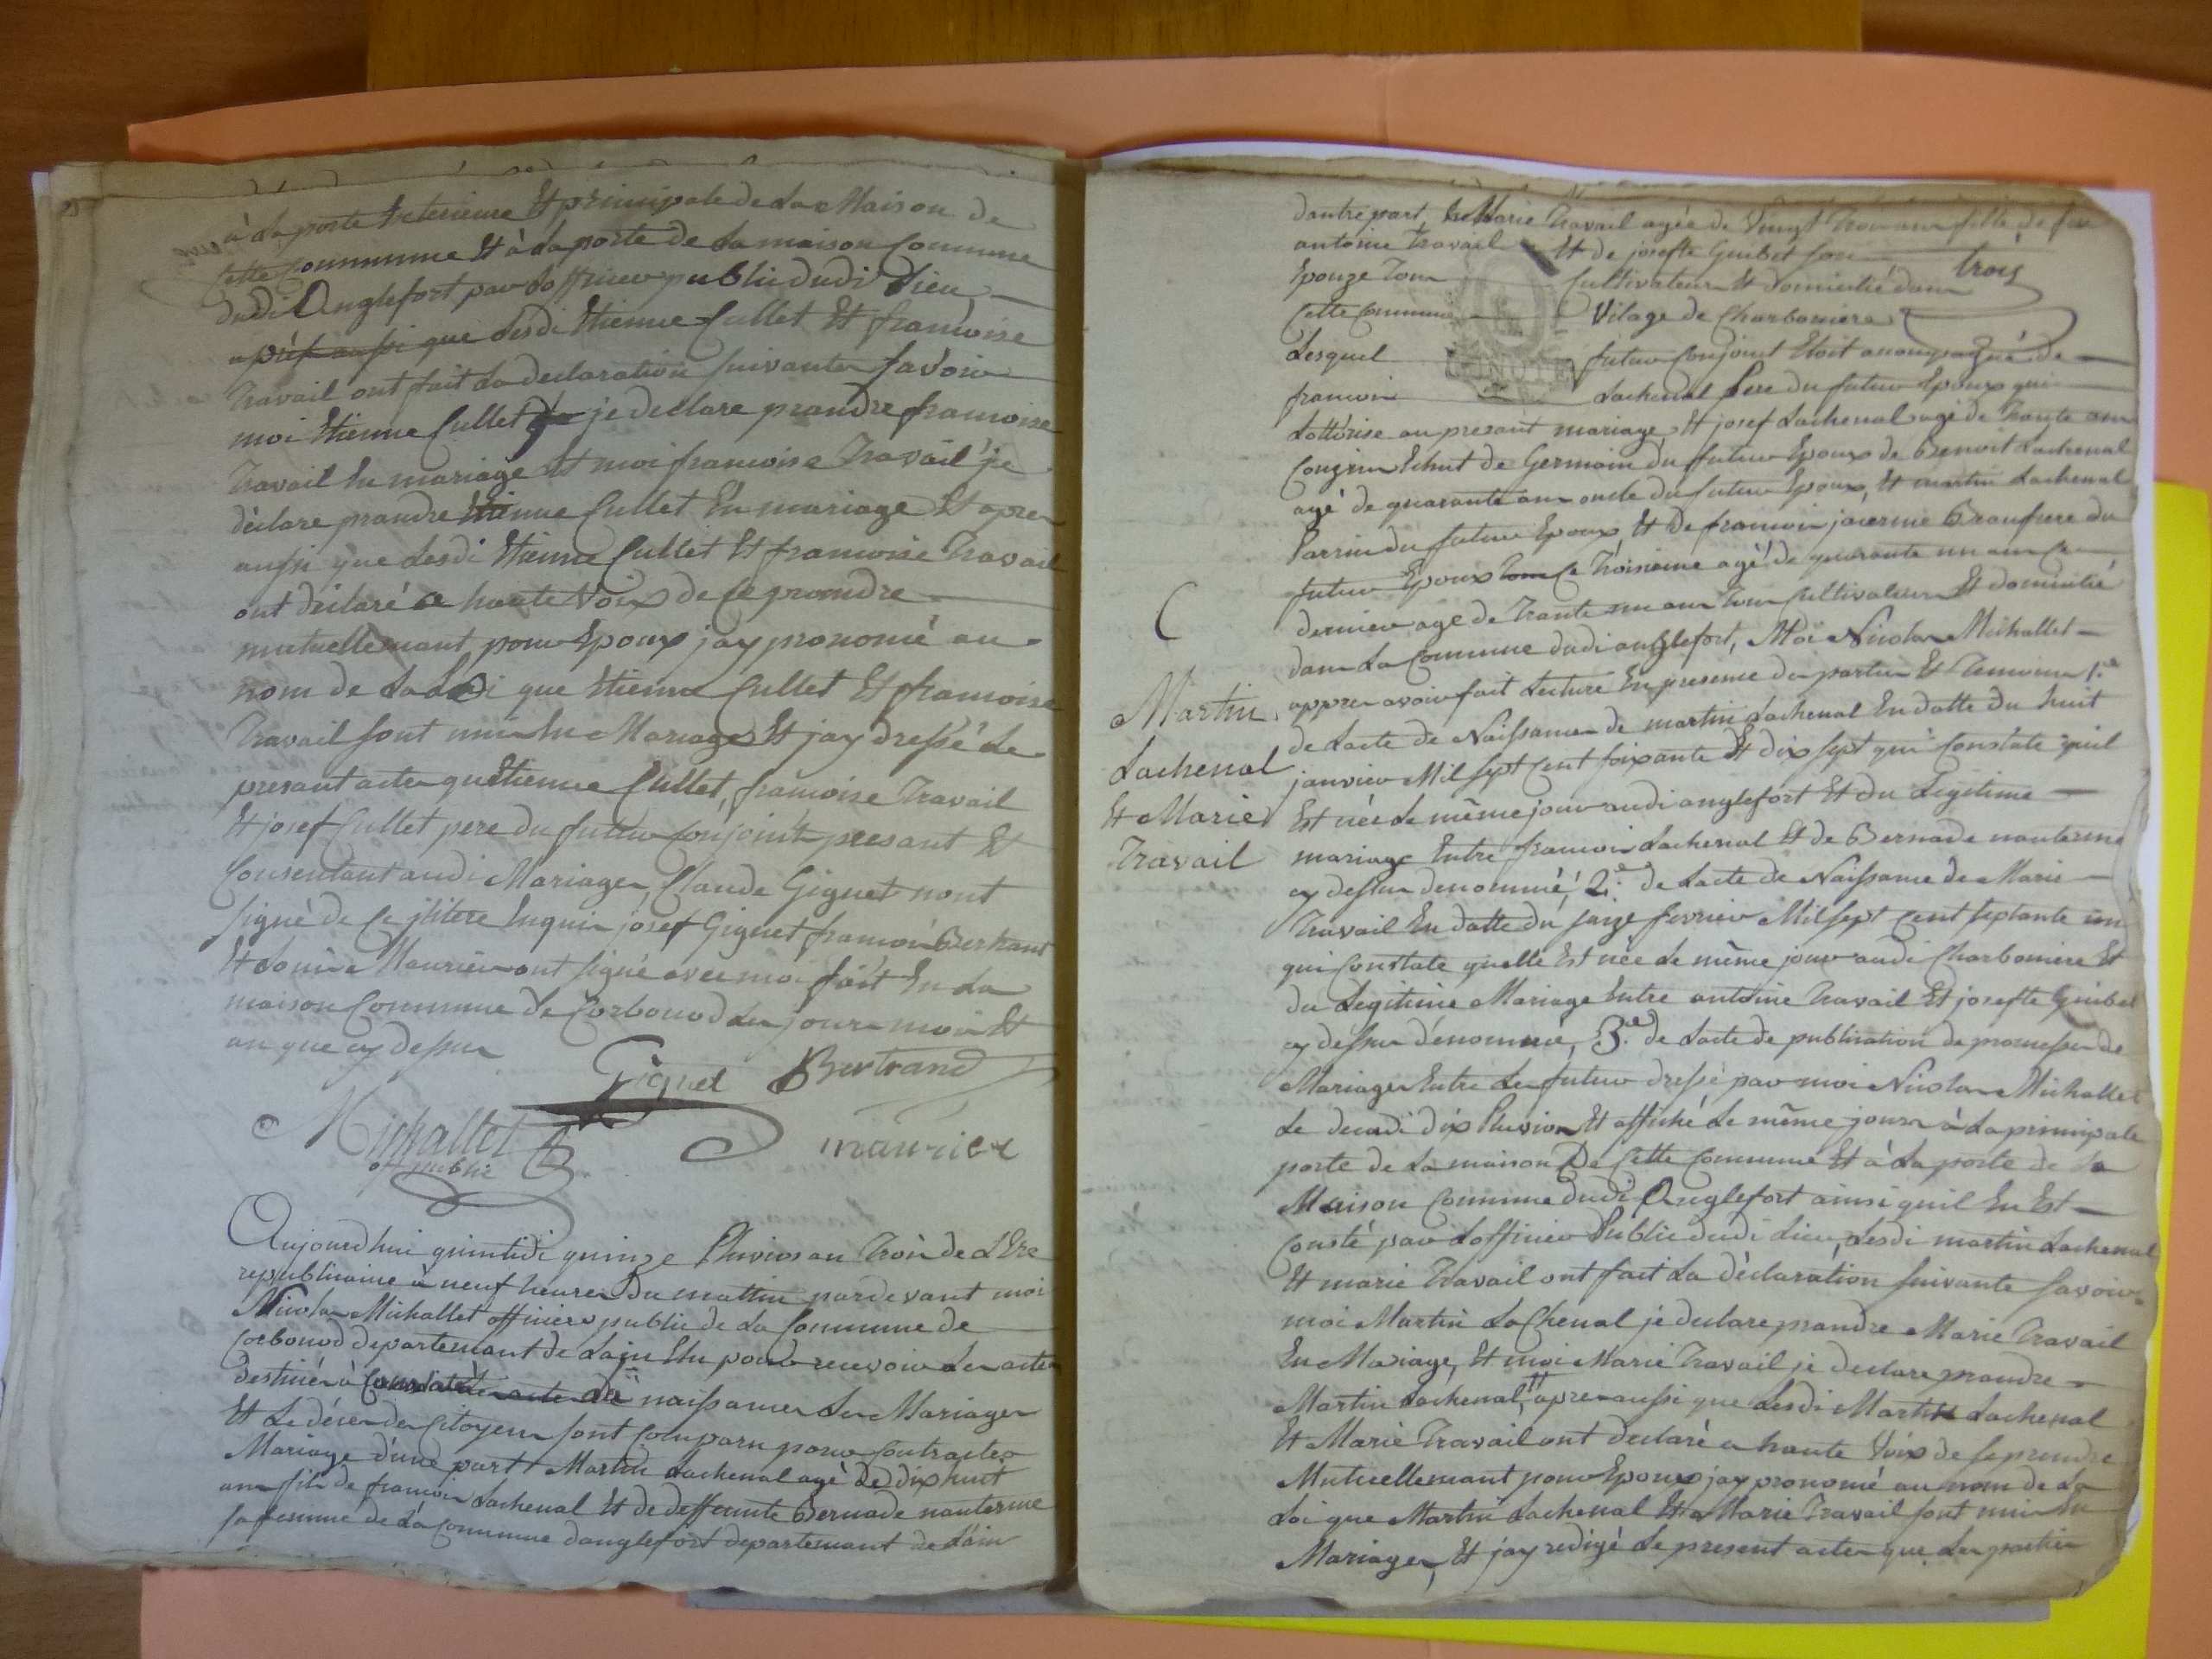 à La porte Exterieure Et principale de La Maison de
Cette Commune Et à La porte de La maison Commune
dudi Anglefort par Lofficier public dudi Lieu
après aussi que Lesdi Etienne Cullet Et francoise
Travail ont fait La declaration suivante savoir
moi Etienne Cullet je declare prandre francoise
Travail En mariage Et moi francoise Travail je
déclare prandre Etienne Cullet En mariage Et apres
aussi que Lesdi Etienne Cullet Et francoise Travail
ont déclaré a haute Voix de Ce prandre
mutuellemant pour Epoux jay prononcé au
nom de La Loi que Etienne Cullet Et francoise
Travail sont unis En Mariage Et jay dressé Le
presant acte que Etienne Cullet, francoise Travail
Et josef Cullet pere du futur Conjoint presant Et
Consentant audi Mariage, Claude Giguet nont
signé de Ce Enquis josef Giguet francois Bertrand
Et Louis Maurier ont signé avec moi fait En La
maison Commune de Corbonod Les jour mois Et
an que cy dessus
Giguet Bertrand
Michallet
of public
maurier
Aujourdhui quintidi quinze Pluvios an Trois de LEre
republicaine à neuf heures Du mattin pardevant moi
Nicolas Michallet officier public de La Commune de
Corbonod departemant de Lain Elu pour recevoir Les actes
destinés à Constater naissances Les Mariages
Et Le décès des Citoyens sont Comparu pour Contracter
Mariage d'une part Martin Lachenal agé de dix huit
ans fils de francois Lachenal Et de deffeunte Bernade nanterme
sa femme de La Commune danglefort departemant de Lain
dautre part, Marie Travail agée de Vingt Trois ans fille de feu
antoine Travail Et de josefte Guibet son
trois
Epouze Tous Cultivateurs Et domicilié dans
Cette Commune Vilage de Charboniere
Lesquel futur Conjoint Etoit accompagné de
francois Lachenal Pere du futur Epoux qui
Lottorise au presant mariage, Et josef Lachenal agé de Trante ans
Cougin de Germain du futur Epoux de Benoit Lachenal
agé de quarante ans oncle du futur Epoux, Et martin Lachenal
Parrin du futur Epoux Et de francois Beaufrere du
futur Epoux Ce Troisieme agé de quarante un ans Ce
dernier agé de Trante un ans Tous Cultivateurs Et domicilié
dans La Commune dudi anglefort, Moi Nicolas Michallet
C
Martin
Lachenal
Et Marie
Travail
appres avoir fait Lecture En presence des parties Et Temoins 1.°
de Lacte de Naissance de martin Lachenal En datte du huit
janvier Mil sept Cent soixante Et dix sept qui Constate quil
Est née Le même jour audi anglefort Et du Legitime
mariage Entre francois Lachenal Et de Bernade nanterme
cy dessus denommé, 2.° de Lacte de Naissance de Marie
Travail En datte du saize fevrier Mil sept Cent septante un
qui Constate quelle Est née Le même jour audi Charboniere Et
du Legitime Mariage Entre antoine Travail Et josefte Guibet
cy dessus dénommé, 3.e de Lacte de publication de promesse de
Mariage Entre Les futur dressé par moi Nicolas Michallet
Le decadi dix Pluvios Et affiché Le même jour à La principale
porte de La maison De Cette Commune Et à La porte de La
Maison Commune dudi Anglefort ainsi quil En Est
Consté par Lofficier Public dudi Lieu, Lesdi martin Lachenal
Et marie Travail ont fait La déclaration suivante savoir
moi Martin LaChenal je declare prandre Marie Travail
En Mariage, Et moi Marie Travail je declare prandre
Martin Lachenal, apres aussi que Lesdi Martin Lachenal
Et Marie Travail ont declaré a haute Voix de se prendre
Mutuellemant pour Epoux jay prononcé au nom de La
Loi que Martin Lachenal Et Marie Travail sont unis En
Mariage, Et jay redigé Le present acte que Les parties